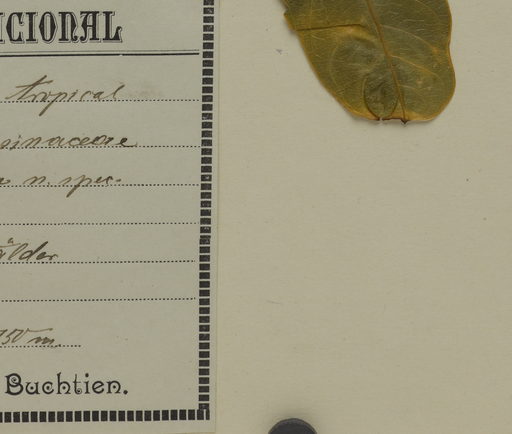 ICIONAL
tropical
sinaceae
n. spec.
älder
750 m.
Buchtien.